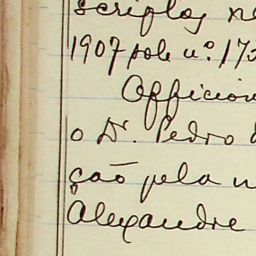 scriptos ne
1907 sob n.º 175
Officiou
o Dr. Pedro
ção pela
Alexandre